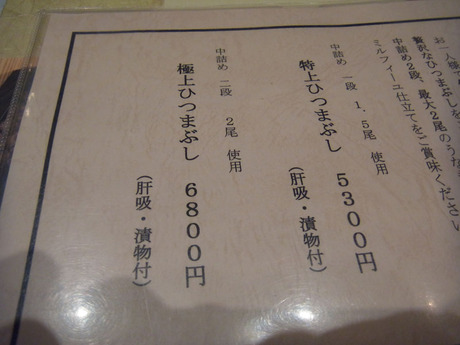 お一人様で
贅沢なひつまぶしを
中詰め2段、最大2尾のうな
ミルフィーユ仕立てをご賞味ください
中詰め 一段 1.5尾 使用
特上ひつまぶし 5300円
(肝吸・漬物付)
中詰め 二段 2尾 使用
極上ひつまぶし 6800円
(肝吸・漬物付)